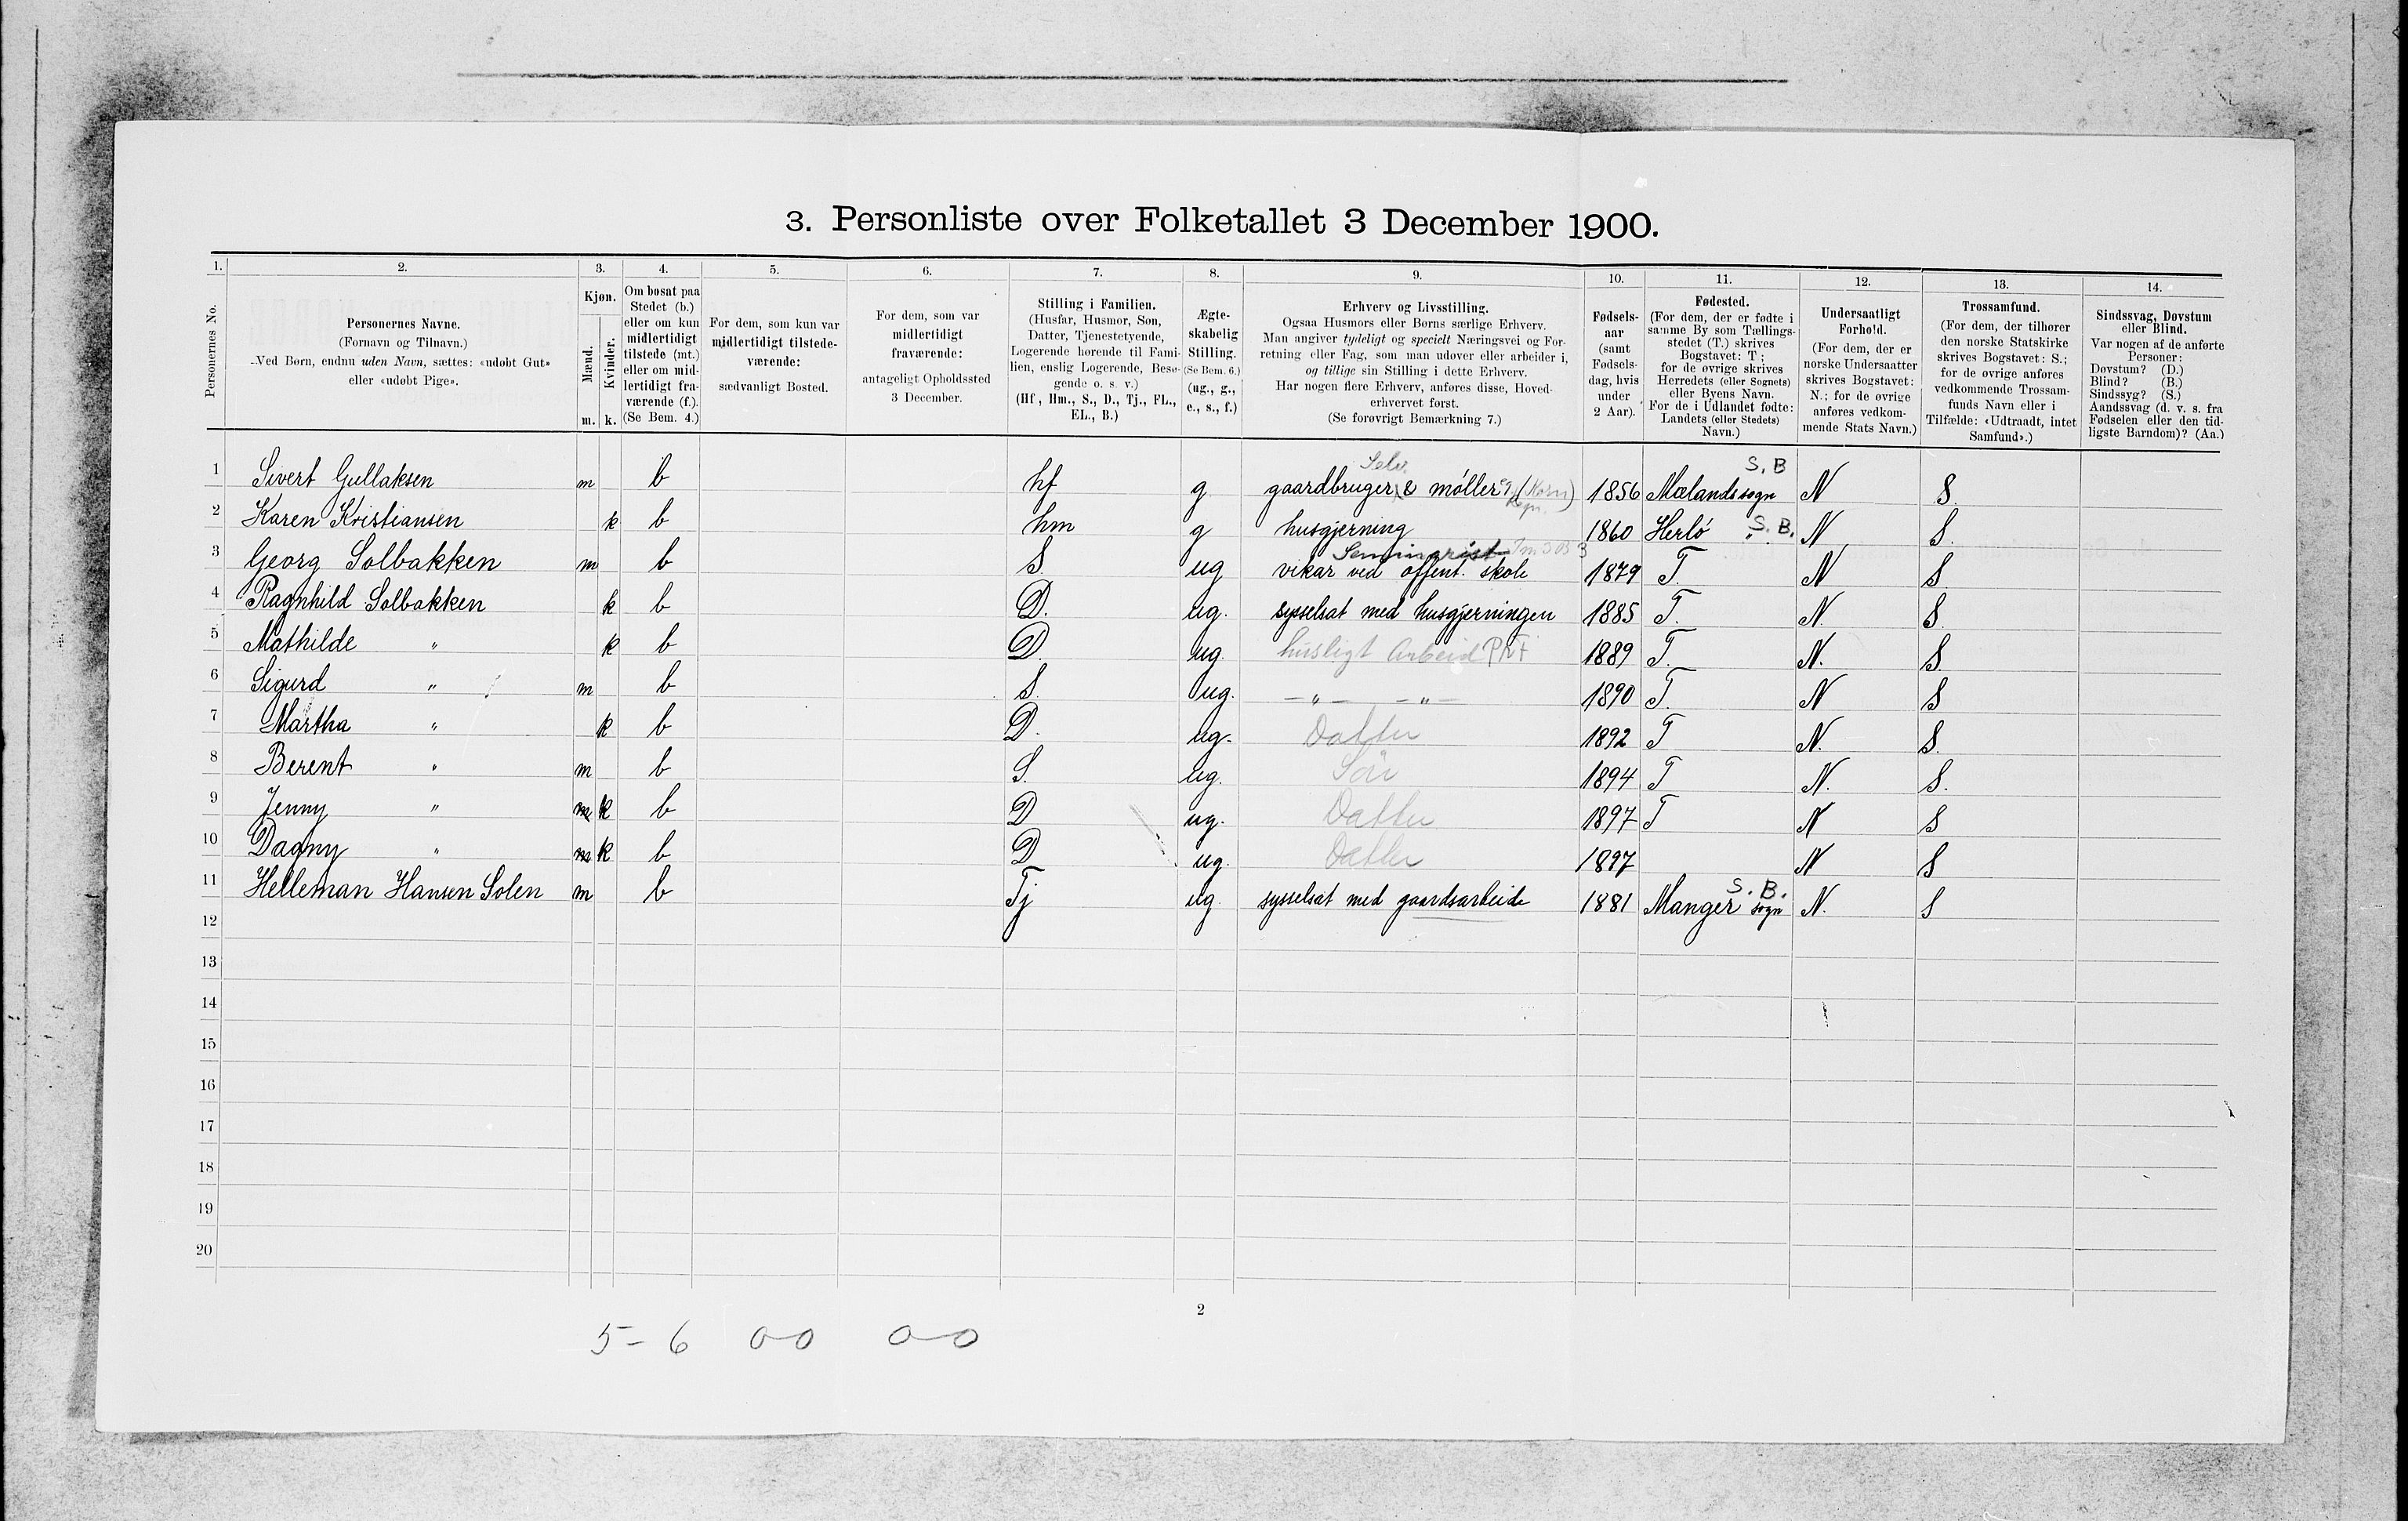 3. Personliste over Folketallet 3 December 1900.
1. 2. 3. 4. 5. 6. 7. 8. 9. 10. 11. 12. 13. 14.
Personernes No.
Personernes Navne.
(Fornavn og Tilnavn.)
Ved Børn, endnu uden Navn, sættes: «udøbt Gut»
eller «udøbt Pige».
Kjøn.
Mænd.
Kvinder.
m. k.
Om bosat paa
Stedet (b.)
eller om kun
midlertidigt
tilstede (mt.)
eller om mid-
lertidigt fra-
værende (f.).
(Se Bem. 4.)
For dem, som kun var
midlertidigt tilstede-
værende:
sædvanligt Bosted.
For dem, som var
midlertidigt
fraværende:
antageligt Opholdssted
3 December.
Stilling i Familien.
(Husfar, Husmor, Søn,
Datter, Tjenestetyende,
Logerende hørende til Fami-
lien, enslig Logerende, Besø-
gende o. s. v.)
(Hf., Hm., S., D., Tj., FL.,
EL., B.)
Ægte-
skabelig
Stilling.
(Se Bem. 6.)
(ug., g.,
e., s., f.)
Erhverv og Livsstilling.
Ogsaa Husmors eller Børns særlige Erhverv.
Man angiver tydeligt og specielt Næringsvei og For-
retning eller Fag, som man udøver eller arbeider i,
og tillige sin Stilling i dette Erhverv.
Har nogen flere Erhverv, anføres disse, Hoved-
erhvervet først.
(Se forøvrigt Bemærkning 7.)
Fødsels-
aar
(samt
Fødsels-
dag, hvis
under
2 Aar).
Fødested.
(For dem, der er fødte i
samme By som Tællings-
stedet (T.) skrives
Bogstavet: T;
for de øvrige skrives
Herredets (eller Sognets)
eller Byens Navn.
For de i Udlandet fødte:
Landets (eller Stedets)
Navn.)
Undersaatligt
Forhold.
(For dem, der er
norske Undersaatter
skrives Bogstavet:
N.; for de øvrige
anføres vedkom-
mende Stats Navn.)
Trossamfund.
(For dem, der tilhører
den norske Statskirke
skrives Bogstavet: S.;
for de øvrige anføres
vedkommende Trossam-
funds Navn eller i
Tilfælde: «Udtraadt, intet
Samfund».)
Sindssvag, Døvstum
eller Blind.
Var nogen af de anførte
Personer:
Døvstum? (D.)
Blind? (B.)
Sindssyg? (S.)
Aandssvag (d. v. s. fra
Fødselen eller den tid-
ligste Barndom)? (Aa.)
Selv. S. B
1 Sivert Gullaksen m b hf g gaardbruger & møller (Korn) 1856 Mælands sogn N S.
2 Karen Kristiansen k b hm g husgjerning 1860 Herlø S. B. N S.
Seminarist
3 Georg Solbakken m b S ug vikar ved offent. skole 1879 T. N S
4 Ragnhild Solbakken k b D. ug. sysselsat med husgjerningen 1885 T. N. S.
5 Mathilde " k b D. ug. husligt Arbeid 1889 T. N. S.
6 Sigurd " m b S. ug. — " — — " — 1890 T. N S
7 Martha " k b D. ug. Datter 1892 T N. S.
8 Berent " m b S. ug. Søn 1894 T N. S.
9 Jenny " m k b D ug. Datter 1897 T N S
10 Dagny " m k b D ug. Datter 1897 N S
S. B.
11 Helleman Hansen Solen m b Tj ug. sysselsat med gaardsarbeide 1881 Manger sogn N. S
12
13
14
15
16
17
18
19
20
2
5 - 6 0-0 0-0